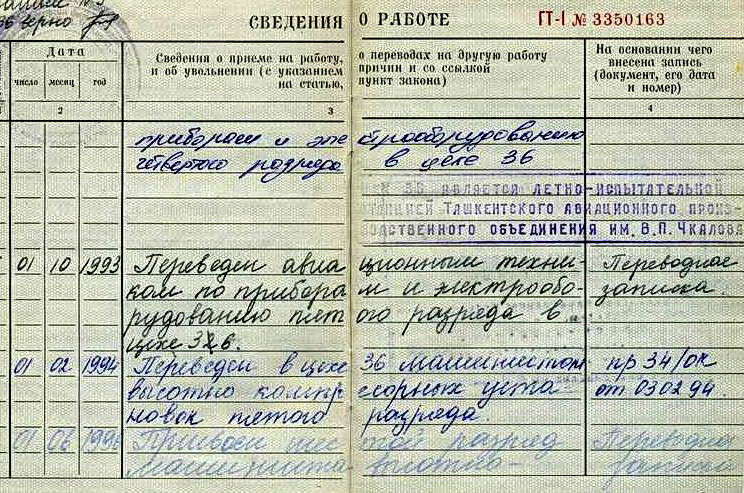 СВЕДЕНИЯ О РАБОТЕ ГТ-I № 3350163
Дата
Сведения о приеме на работу, о переводах на другую работу
и об увольнении (с указанием причин и со ссылкой
на статью, пункт закона)
На основании чего
внесена запись
(документ, его дата
и номер)
число месяц год
2 3 4
приборам и электрооборудованию
четвертого разряда в цехе 36
Цех 36 является летно-испытательной
станцией Ташкентского авиационного произ-
водственного объединения им. В.П. Чкалова
01 10 1993 Переведен авиационным техни- Переводная
ком по приборам и электрообо- записка.
рудованию пятого разряда в
цехе 36.
01 02 1994 Переведен в цехе 36 машинистом пр 34/ок
высотно компрессорных уста от 03 02 94.
новок пятого разряда.
01 06 Присвоен шестой разряд Переводная
машиниста высотно- записка